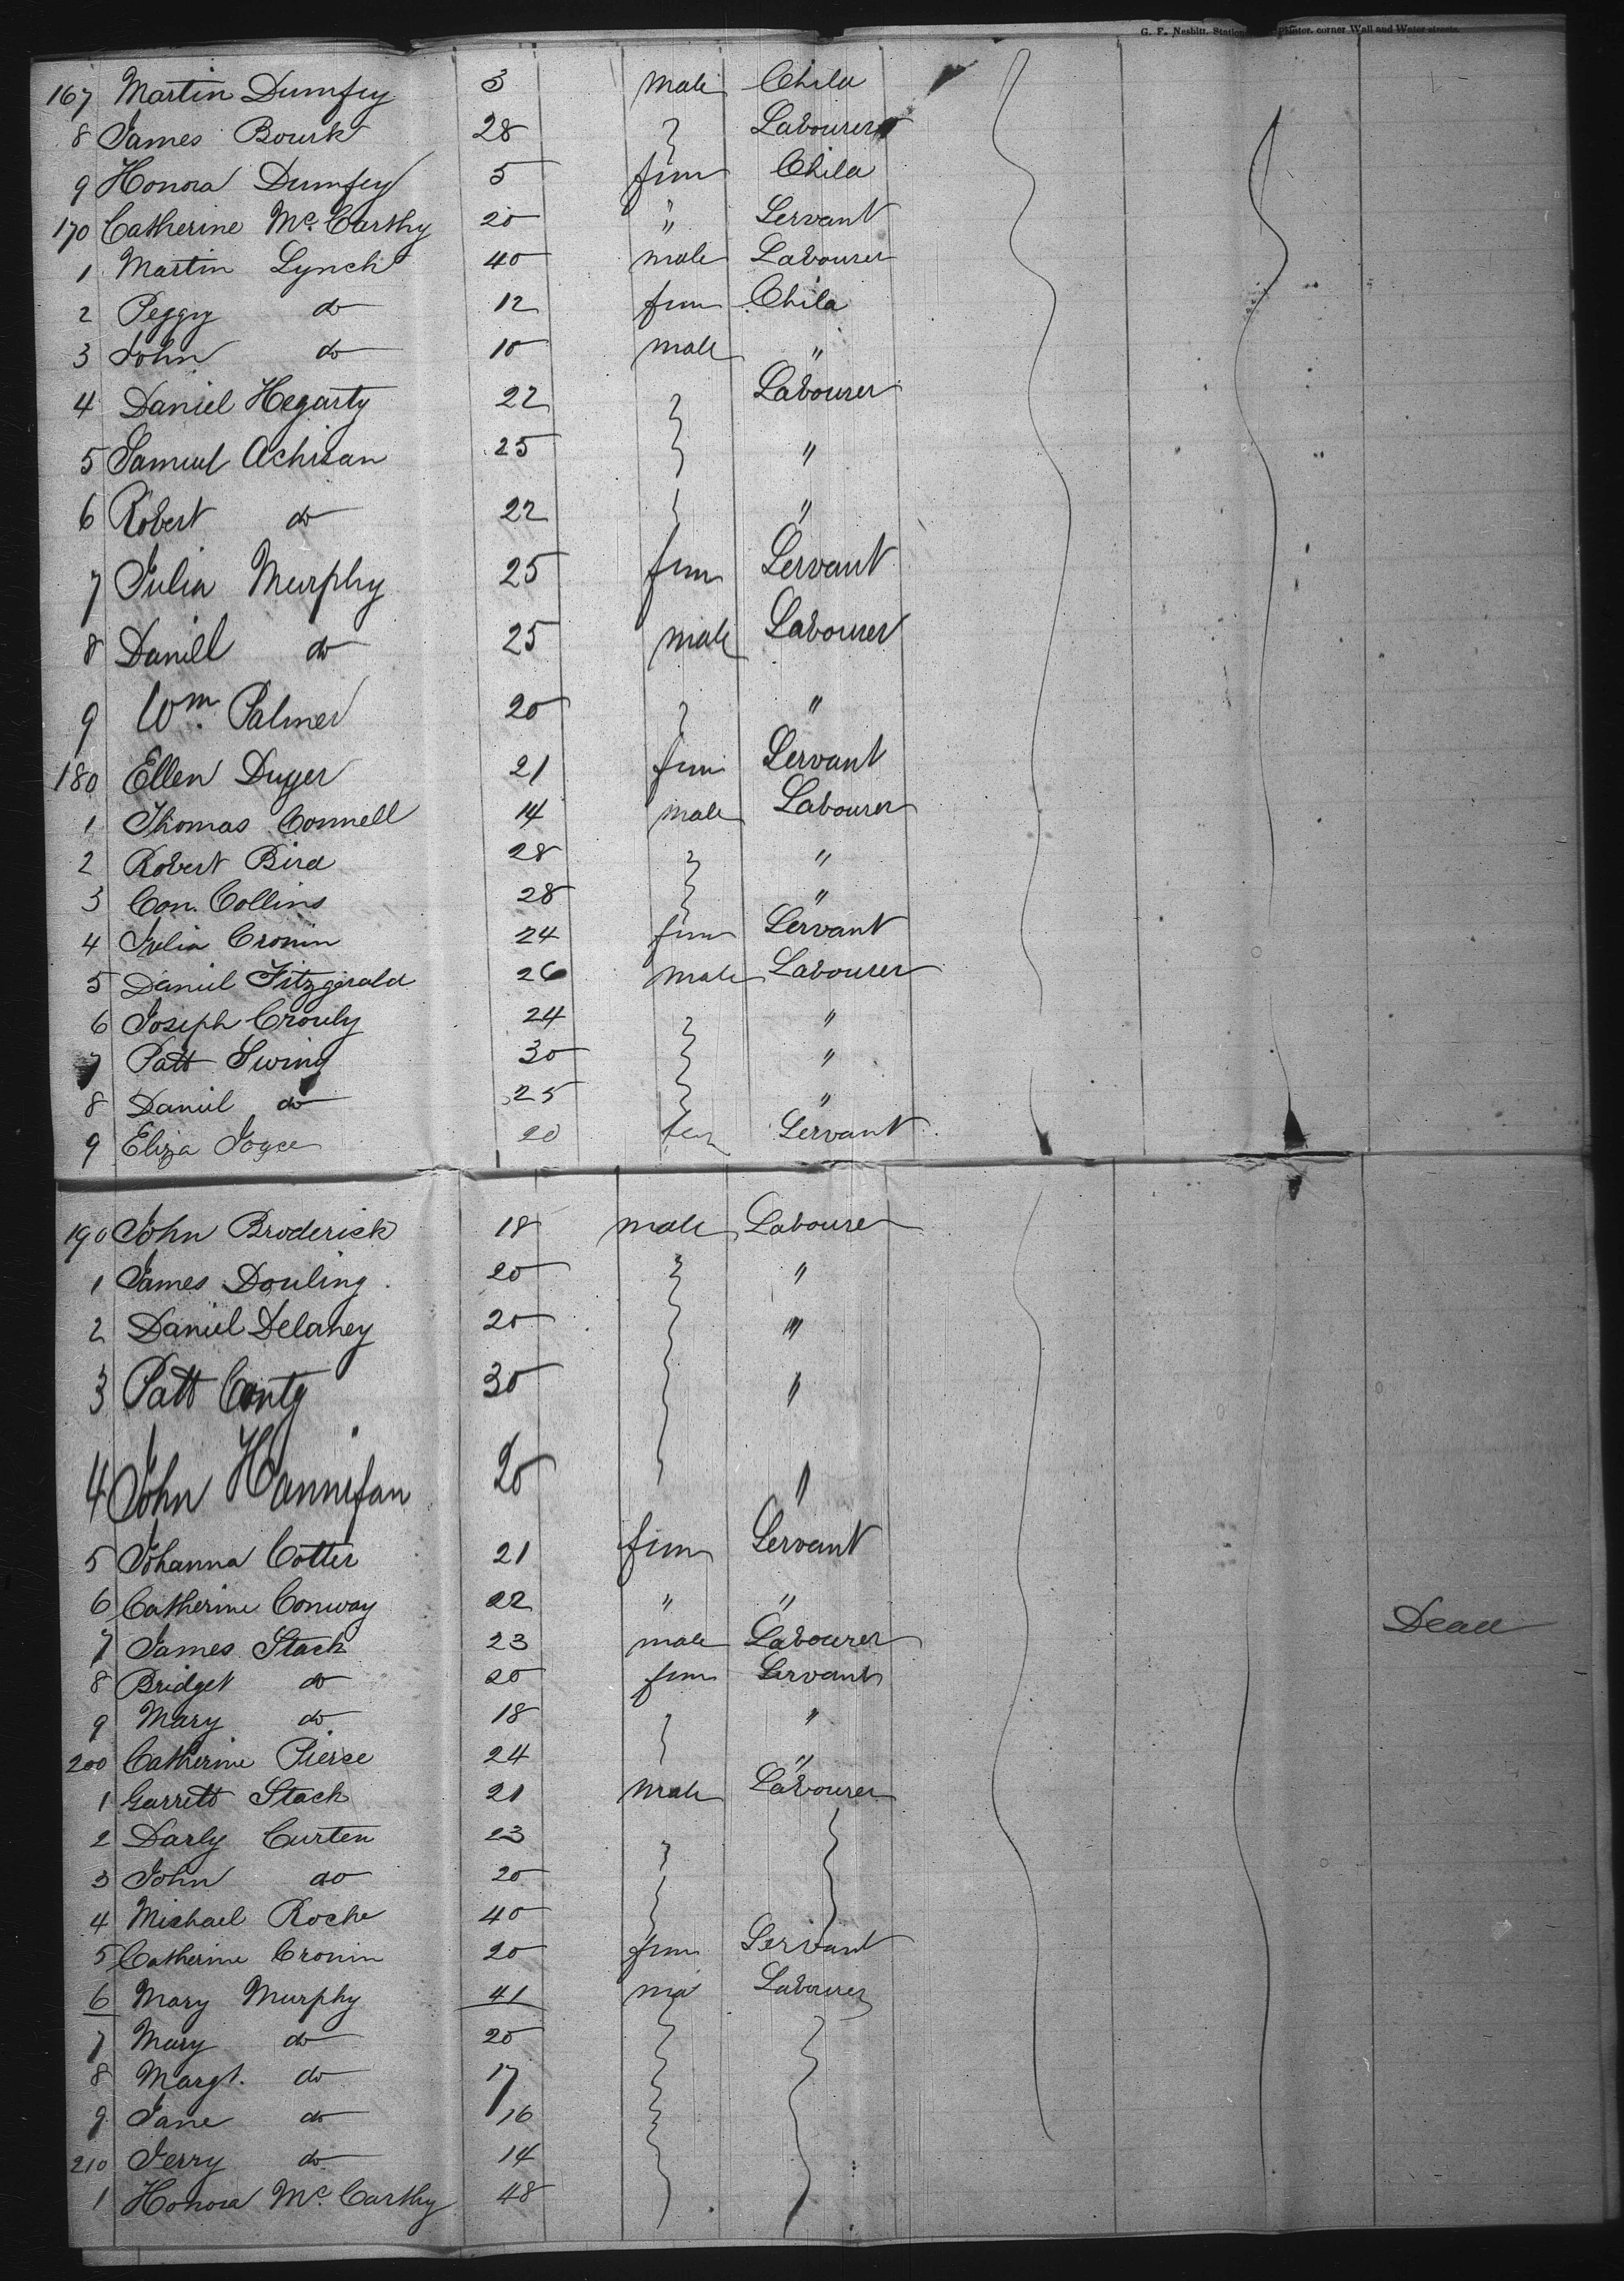 G. F. Nesbitt, Stationer Printer, corner Wall and Water streets.
167 Martin Dumfey 3 male Child
8 James Bourk 28 } Labourer
9 Honora Dumfey 5 fem Child
170 Catherine Mc. Carthy 20 " Servant
1 Martin Lynch 40 male Labourer
2 Peggy do 12 fem Child
3 John do 10 male "
4 Daniel Hegarty 22 } Labourer
5 Samuel Achisan 25 } "
6 Robert do 22 } "
7 Julia Murphy 25 fem Servant
8 Daniel do 25 male Labourer
9 Wm. Palmer 20 } "
180 Ellen Duyer 21 fem Servant
1 Thomas Connell 14 male Labourer
2 Robert Bird 28 } "
3 Con. Collins 28 } "
4 Julia Cronin 24 fem Servant
5 Daniel Fitzgerald 26 male Labourer
6 Joseph Crouly 24 } "
7 Patt Swiny 30 } "
8 Daniel do 25 } "
9 Eliza Joyce 20 fem Servant
190 John Broderick 18 male Labourer
1 James Douling 20 } "
2 Daniel Delaney 20 } "
3 Patt Canty 30 } "
4 John Hannifan 20 } "
5 Johanna Cotter 21 fem Servant
6 Catherine Conway 22 " "
7 James Stack 23 male Labourer Dead
8 Bridget do 20 fem Servant
9 Mary do 18 } "
200 Catherine Pierse 24 } "
1 Garrett Stack 21 male Labourer
2 Darly Curten 23 } }
3 John do 20 } }
4 Michael Roche 40 } }
5 Catherine Cronin 20 fem Servant
6 Mary Murphy 41 ma Labourer
7 Mary do 20 } }
8 Margt. do 17 } }
9 Jane do 16 } }
210 Jerry do 14 } }
1 Honora Mc. Carthy 48 } }